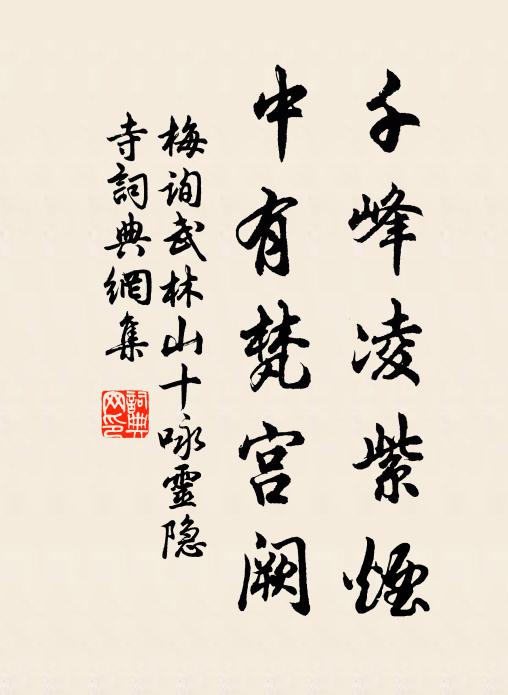 千峰凌紫煙
中有梵宫阙
梅询武林山十咏靈隐
寺詞典網集
詞典网印